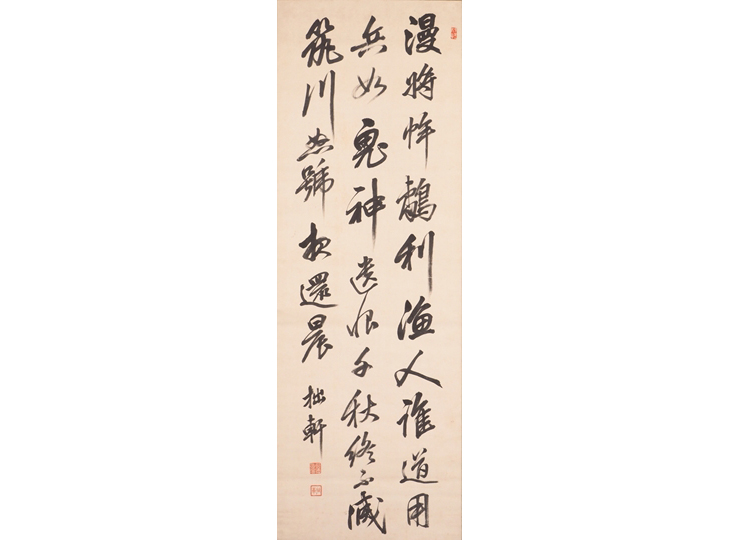 漫將蚌鷸利漁人誰道用
兵如鬼神遺恨千秋終不滅
筑川怒號夜還晨 拙軒